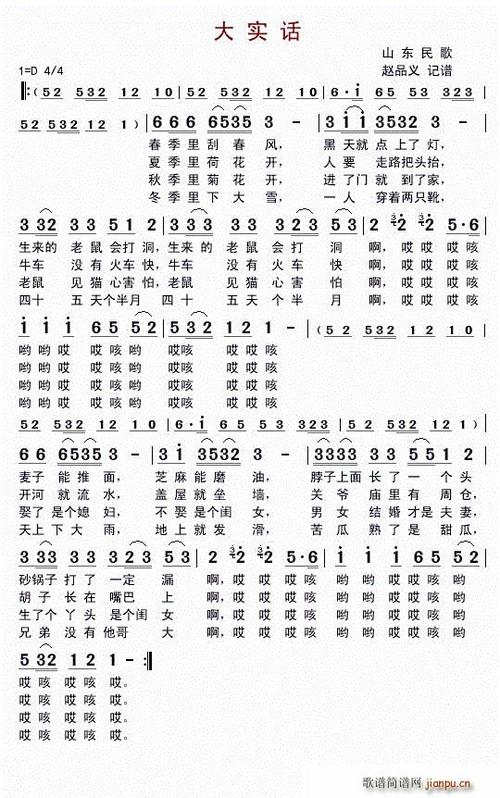 大实话
山东民歌
1=D 4/4
赵品义 记谱
‖:(52 532 12 10 | 52 532 12 10 | 6·i 65 53 323 |
52 532 12 1) | 666 6535 3 - | 3ii 3532 3 - |
春季里刮春风， 黑天就点上了灯，
夏季里荷花开， 人要 走路把头抬，
秋季里菊花开， 进了门就到了家，
冬季里下大雪， 一人 穿着两只靴，
3 332 33 51 2 | 3 332 33 53 2 | 2 2 2 5·6 |
生来的 老鼠会打洞，生来的 老鼠会打 洞 啊，哎哎哎咳
牛车 没有火车快，牛车 没有火车 快 啊，哎哎哎咳
老鼠 见猫心害怕，老鼠 见猫心害 怕 啊，哎哎哎咳
四十 五天个半月 四十 五天个半 月 啊，哎哎哎咳
i i i 65 52 | 5 532 12 1 - | (52 532 12 10 |
哟哟哎 哎咳 哎咳 哎咳 哎咳 哎
哟哟哎 哎咳 哎咳 哎咳 哎咳 哎
哟哟哎 哎咳 哎咳 哎咳 哎咳 哎
哟哟哎 哎咳 哎咳 哎咳 哎咳 哎
52 532 12 10 | 6·i 65 53 323 | 52 532 12 1) |
66 6535 3 - | 3i 3532 3 - | 3333 35 51 2 |
麦子 能推面， 芝麻能磨 油， 脖子上面 长了 一个 头
开河 就流 水， 盖屋就垒 墙， 关 爷 庙里 有 周仓，
娶了 是个媳妇， 不娶是个闺 女， 男 女 结婚才是夫妻，
天上 下大 雨， 地上就发 滑， 苦瓜 熟了 是 甜瓜，
3 333 33 323 53 | 2 2 2 5·6 | i i i 65 65 |
砂锅子 打了 一定 漏 啊，哎哎哎咳 哟 哟哎哎咳哎咳
胡子 长在 嘴巴 上 啊，哎哎哎咳 哟 哟哎哎咳哎咳
生了个 丫头 是个闺 女 啊，哎哎哎咳 哟 哟哎哎咳哎咳
兄弟 没有 他哥 大 啊，哎哎哎咳 哟 哟哎哎咳哎咳
5 532 12 1- :‖
哎咳 哎咳 哎。
哎咳 哎咳 哎。
哎咳 哎咳 哎。
哎咳 哎咳 哎。
歌谱简谱网
jianpu.cn